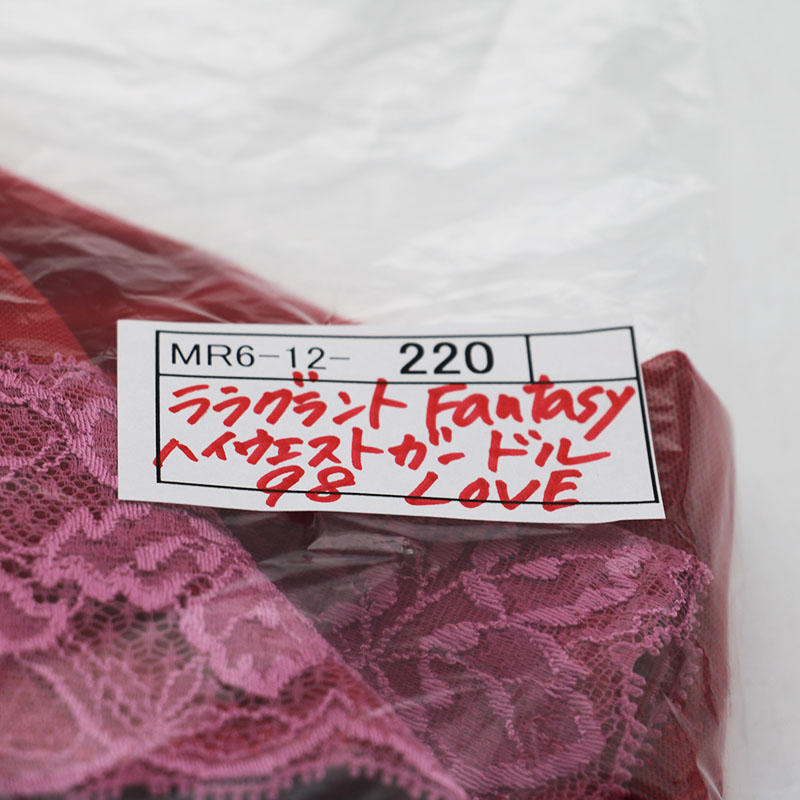 MR6-12- 220
ララグラント Fantasy
ハイウエストガードル
98 LOVE